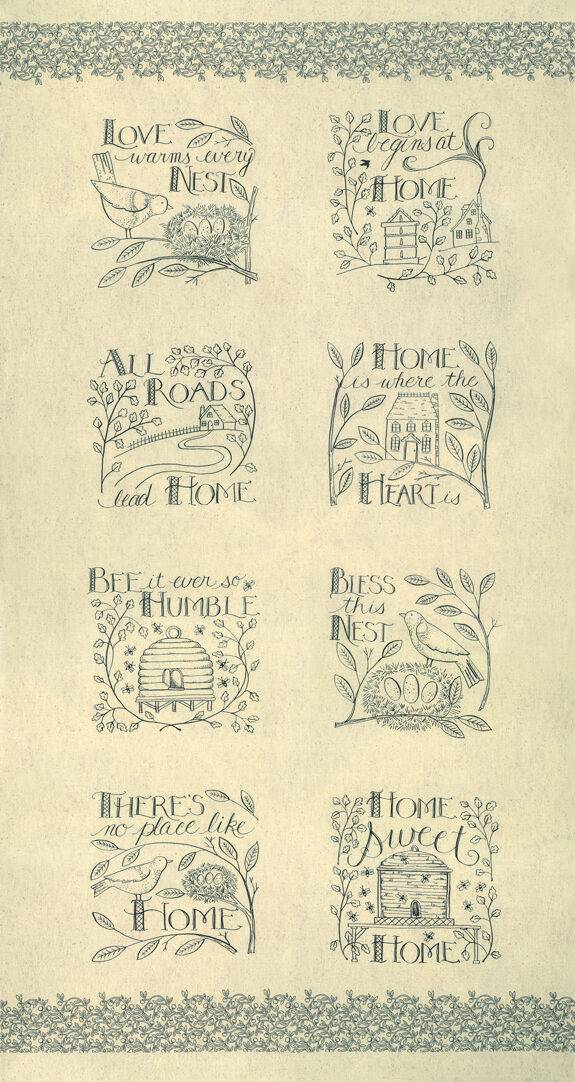 LOVE
warms every
NEST
LOVE
begins at
HOME
ALL
ROADS
lead HOME
HOME
is where the
HEART is
BEE it ever so
HUMBLE
BLESS
this
NEST
THERE'S
no place like
HOME
HOME
sweet
HOME